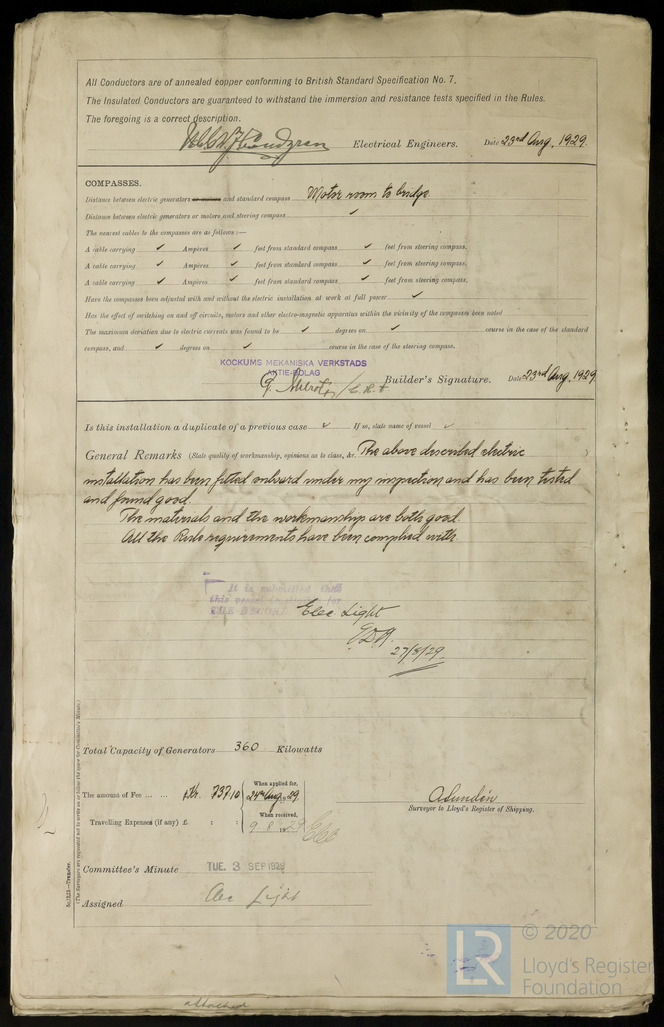 All Conductors are of annealed copper conforming to British Standard Specification No. 7.
The Insulated Conductors are guaranteed to withstand the immersion and resistance tests specified in the Rules.
The foregoing is a correct description.
Electrical Engineers. Date 23rd Aug, 1929.
COMPASSES.
Distance between electric generators or motors and standard compass Motor room to bridge
Distance between electric generators or motors and steering compass ✓
The nearest cables to the compasses are as follows:—
A cable carrying ✓ Ampères ✓ feet from standard compass ✓ feet from steering compass.
A cable carrying ✓ Ampères ✓ feet from standard compass ✓ feet from steering compass.
A cable carrying ✓ Ampères ✓ feet from standard compass ✓ feet from steering compass.
Have the compasses been adjusted with and without the electric installation at work at full power ✓
Has the effect of switching on and off circuits, motors and other electro-magnetic apparatus within the vicinity of the compasses been noted
The maximum deviation due to electric currents was found to be ✓ degrees on ✓ course in the case of the standard
compass, and ✓ degrees on ✓ course in the case of the steering compass.
KOCKUMS MEKANISKA VERKSTADS
AKTIE-BOLAG
Builder's Signature. Date 23rd Aug, 1929
Is this installation a duplicate of a previous case ✓ If so, state name of vessel ✓
General Remarks (State quality of workmanship, opinions as to class, &c. The above described electric
installation has been fitted onboard under my inspection and has been tested
and found good.
The materials and the workmanship are both good.
All the Rule requirements have been complied with
It is submitted that
this vessel is eligible for
THE RECORD Elec Light
27/8/29
Total Capacity of Generators 360 Kilowatts
The amount of Fee ... ... Kr. 737.10
When applied for,
24th Aug. 29
Travelling Expenses (if any) £ : :
When received,
9 8 1929
A Lundén
Surveyor to Lloyd's Register of Shipping.
Committee's Minute TUE. 3 SEP 1929
Assigned Elec Light
(The Surveyors are requested not to write on or below the space for Committee's Minute.)
Transfer.
attached
LR © 2020
Lloyd's Register
Foundation